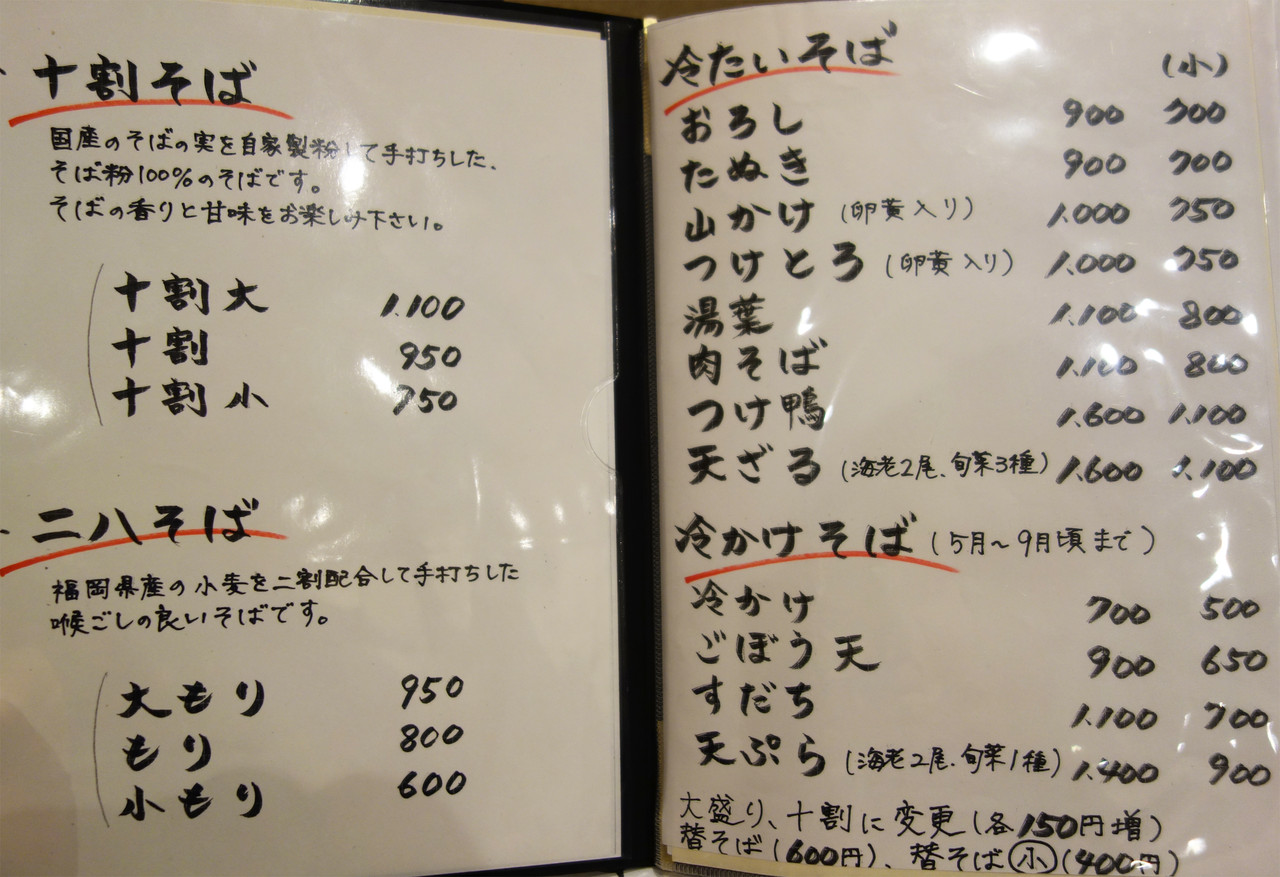 十割そば
国産のそばの実を自家製粉して手打ちした、
そば粉100%のそばです。
そばの香りと甘味をお楽しみ下さい。
十割大 1.100
十割 950
十割小 750
二八そば
福岡県産の小麦を二割配合して手打ちした
喉ごしの良いそばです。
大もり 950
もり 800
小もり 600
冷たいそば (小)
おろし 900 700
たぬき 900 700
山かけ (卵黄入り) 1.000 750
つけとろ (卵黄入り) 1.000 750
湯葉 1.100 800
肉そば 1.100 800
つけ鴨 1.600 1.100
天ざる (海老2尾、旬菜3種) 1.600 1.100
冷かけそば (5月〜9月頃まで)
冷かけ 700 500
ごぼう天 900 650
すだち 1.100 700
天ぷら (海老2尾、旬菜1種) 1.400 900
大盛り、十割に変更(各150円増)
替そば(600円)、替そば小(400円)